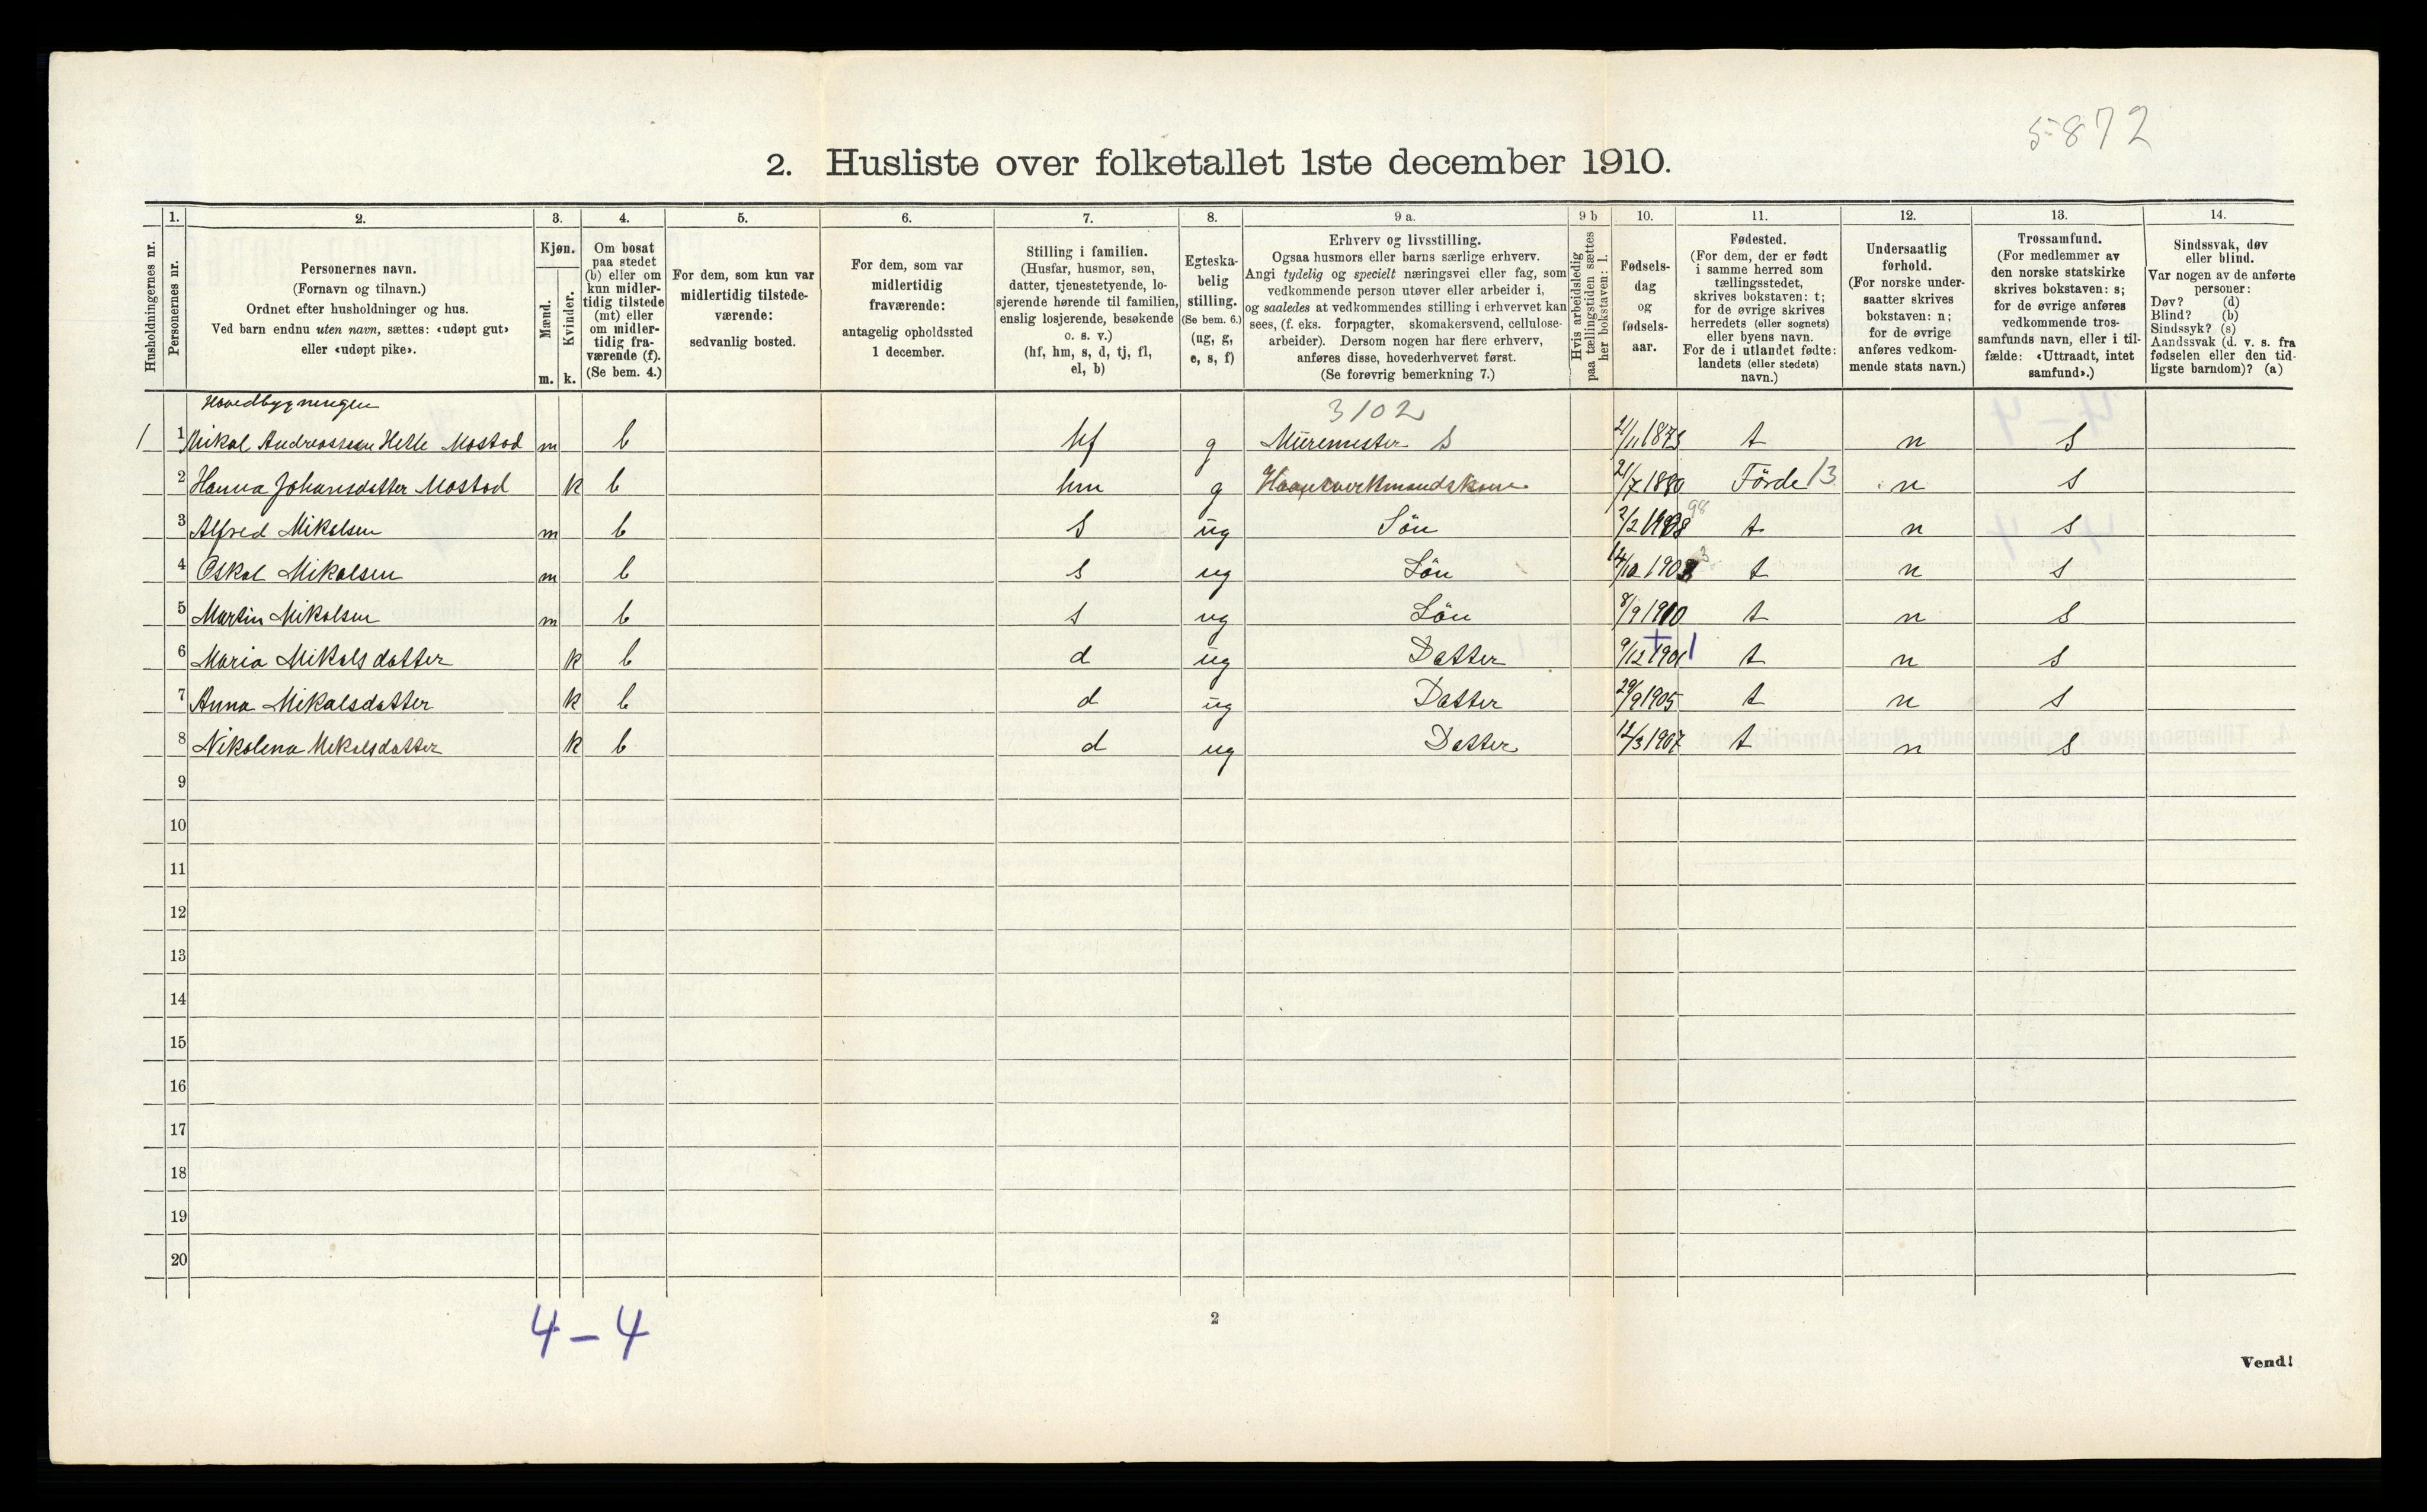 5872
2. Husliste over folketallet 1ste december 1910.
1. 2. 3. 4. 5. 6. 7. 8. 9 a. 9 b 10. 11. 12. 13. 14.
Husholdningernes nr.
Personernes nr.
Personernes navn.
(Fornavn og tilnavn.)
Ordnet efter husholdninger og hus.
Ved barn endnu uten navn, sættes: «udøpt gut»
eller «udøpt pike».
Kjøn.
Mænd.
Kvinder.
m. k.
Om bosat
paa stedet
(b) eller om
kun midler-
tidig tilstede
(mt) eller
om midler-
tidig fra-
værende (f).
(Se bem. 4.)
For dem, som kun var
midlertidig tilstede-
værende:
sedvanlig bosted.
For dem, som var
midlertidig
fraværende:
antagelig opholdssted
1 december.
Stilling i familien.
(Husfar, husmor, søn,
datter, tjenestetyende, lo-
sjerende hørende til familien,
enslig losjerende, besøkende
o. s. v.)
(hf, hm, s, d, tj, fl,
el, b)
Egteska-
belig
stilling.
(Se bem. 6.)
(ug, g,
e, s, f)
Erhverv og livsstilling.
Ogsaa husmors eller barns særlige erhverv.
Angi tydelig og specielt næringsvei eller fag, som
vedkommende person utøver eller arbeider i,
og saaledes at vedkommendes stilling i erhvervet kan
sees, (f. eks. forpagter, skomakersvend, cellulose-
arbeider). Dersom nogen har flere erhverv,
anføres disse, hovederhvervet først.
(Se forøvrig bemerkning 7.)
Hvis arbeidsledig
paa tællingstiden sættes
her bokstaven: l.
Fødsels-
dag
og
fødsels-
aar.
Fødested.
(For dem, der er født
i samme herred som
tællingsstedet,
skrives bokstaven: t;
for de øvrige skrives
herredets (eller sognets)
eller byens navn.
For de i utlandet fødte:
landets (eller stedets)
navn.)
Undersaatlig
forhold.
(For norske under-
saatter skrives
bokstaven: n;
for de øvrige
anføres vedkom-
mende stats navn.)
Trossamfund.
(For medlemmer av
den norske statskirke
skrives bokstaven: s;
for de øvrige anføres
vedkommende tros-
samfunds navn, eller i til-
fælde: «Uttraadt, intet
samfund».)
Sindssvak, døv
eller blind.
Var nogen av de anførte
personer:
Døv? (d)
Blind? (b)
Sindssyk? (s)
Aandssvak (d. v. s. fra
fødselen eller den tid-
ligste barndom)? (a)
Hovedbygningen 3102
1 1 Mikal Andreassen Helle Mostad m b hf g Muremester S 21/11 1873 t n s
2 Hanna Johansdatter Mostad k b hm g 21/7 1880 Förde 13 n s
3 Alfred Mikalsen m b s ug Sön 2/2 98 t n s
4 Oskal Mikalsen m b s ug Sön 14/10 1903 t n s
5 Martin Mikalsen m b s ug Sön 8/9 1910 t n s
6 Maria Mikalsdatter k b d ug Datter 9/12 1901 t n s
7 Anna Mikalsdatter k b d ug Datter 29/9 1905 t n s
8 Nikolina Mikalsdatter k b d ug Datter 12/3 1907 t n s
9
10
11
12
13
14
15
16
17
18
19
20
4-4
2
Vend!